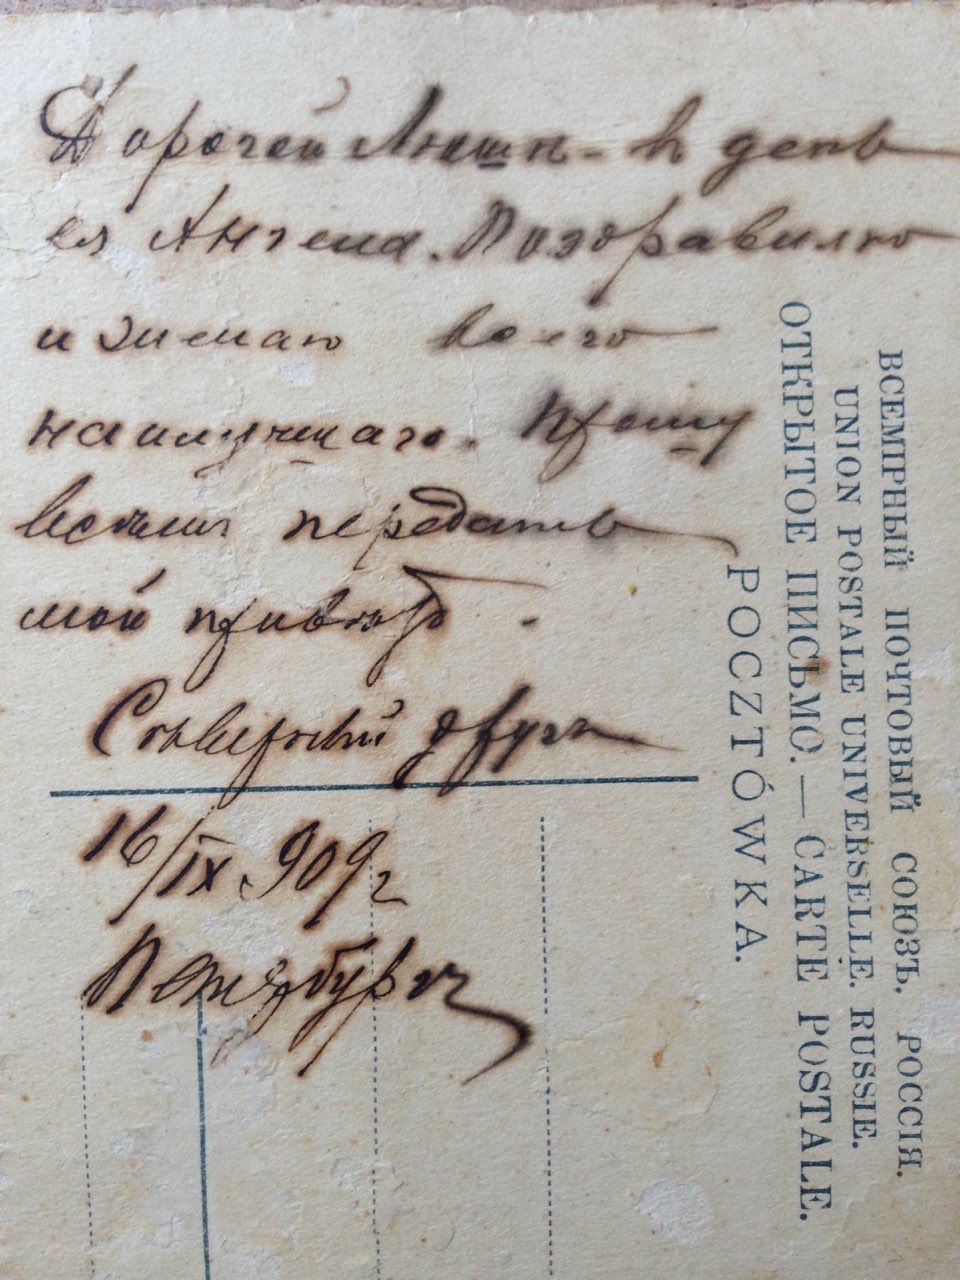 Дорогей Люшъ - въ день
ея Ангела. Поздравляю
и желаю всего
наилучшаго. Прошу
всѣмъ передать
мой приветъ.
другъ
16/IX 909 г
Петербургъ
ВСЕМІРНЫЙ ПОЧТОВЫЙ СОЮЗЪ. РОССІЯ.
UNION POSTALE UNIVERSELLE. RUSSIE.
ОТКРЫТОЕ ПИСЬМО. — CARTE POSTALE.
POCZTÓWKA.